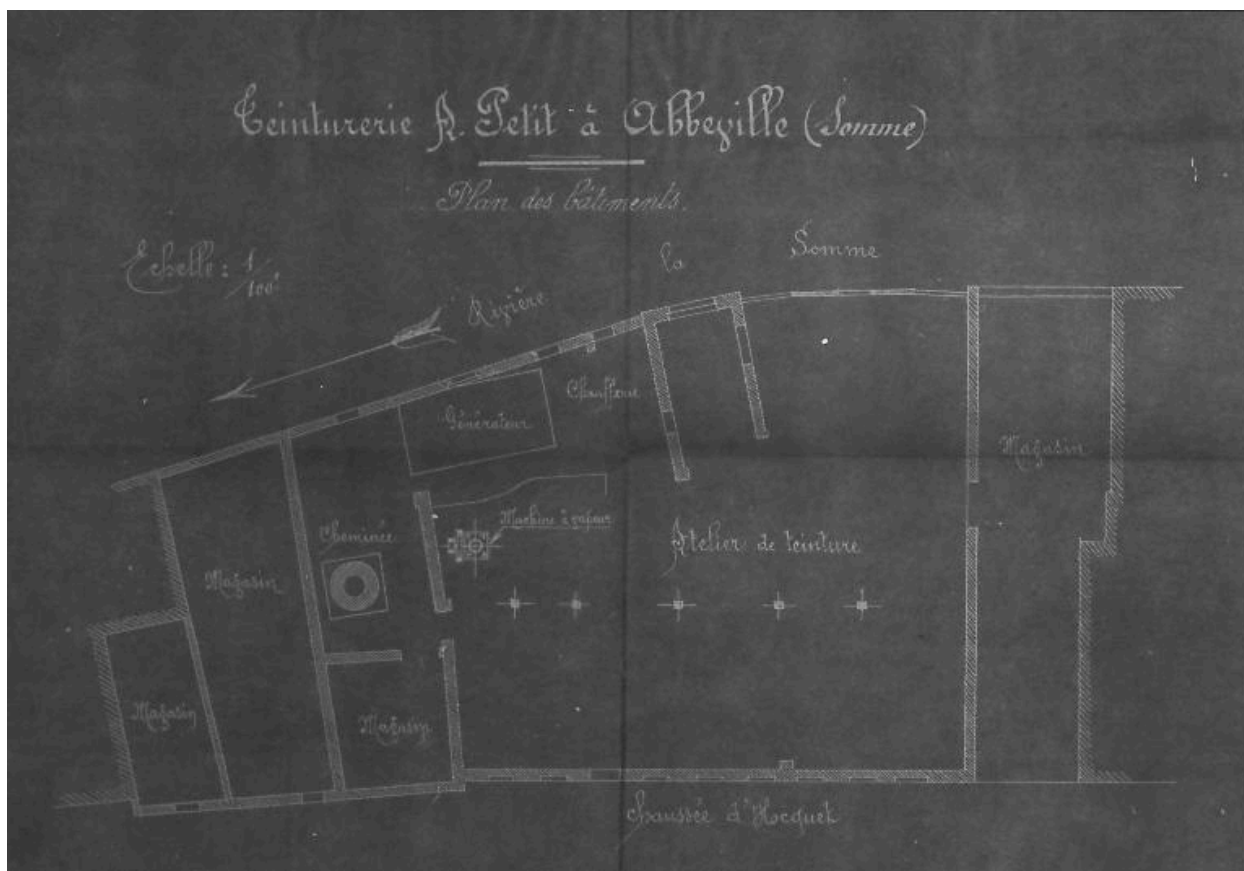 Teinturerie A. Petit à Abbeville (Somme)
Plan des bâtiments.
Echelle : 1/100e
Rivière la Somme
Générateur
Chaufferie
Magasin
Cheminée
Machine à vapeur
Atelier de teinture
Magasin
Magasin
Magasin
chaussée d'Hocquet